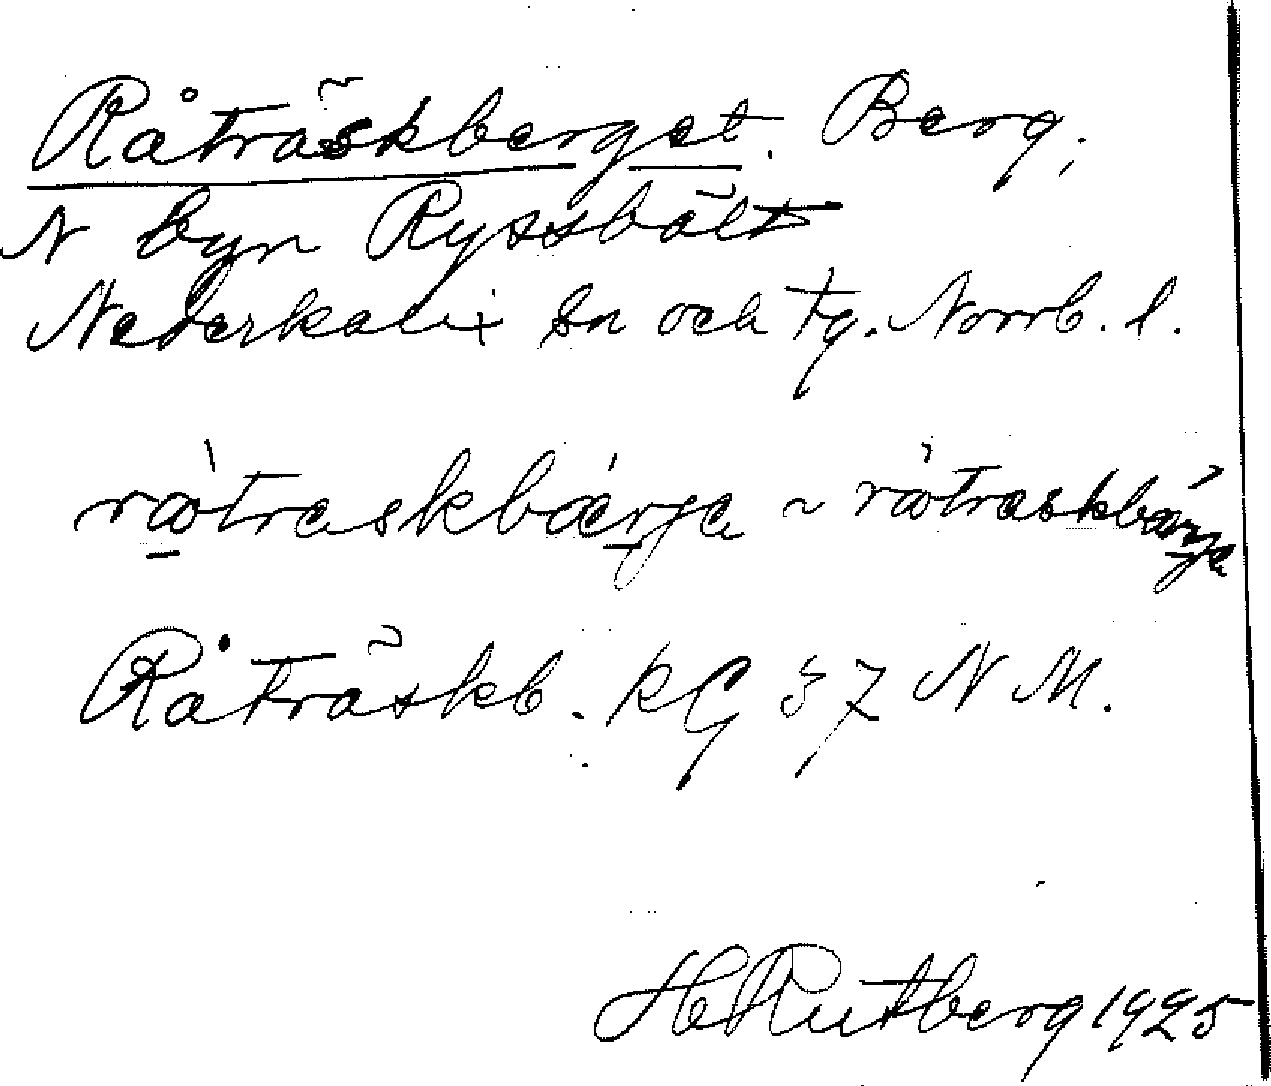 Råträskberget. Berg;
N byn Ryssbält
Nederkalix sn och tg. Norrb. l.
råtraskbærga ~ råtraskbærga
Råträskb. KG 37 N M.
H Rutberg 1925